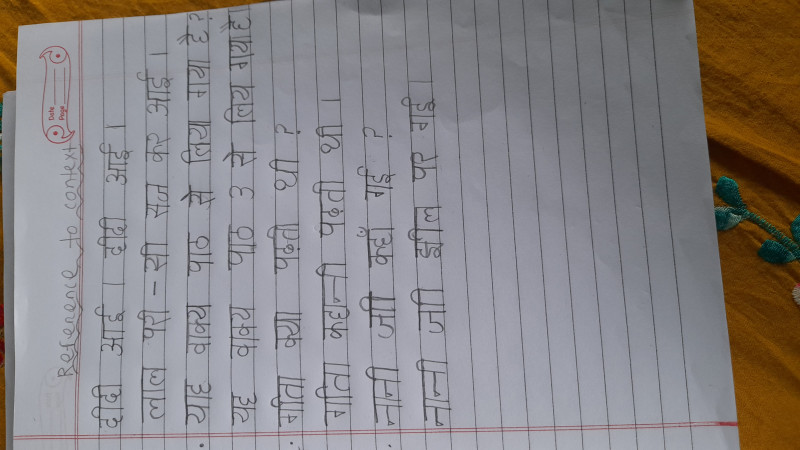 Date
Page
Reference to context
दीदी आई । दीदी आई ।
लाल परी - सी सज कर आई ।
• याह वाक्य पाठ से लिय गया है ?
यह वाक्य पाठ 3 से लिय गया है।
• गीता क्या पढ़ती थी ?
गीता कहानी पढ़ती थी ।
• नानी जी कहाँ गई ?
नानी जी झील पर गई ।